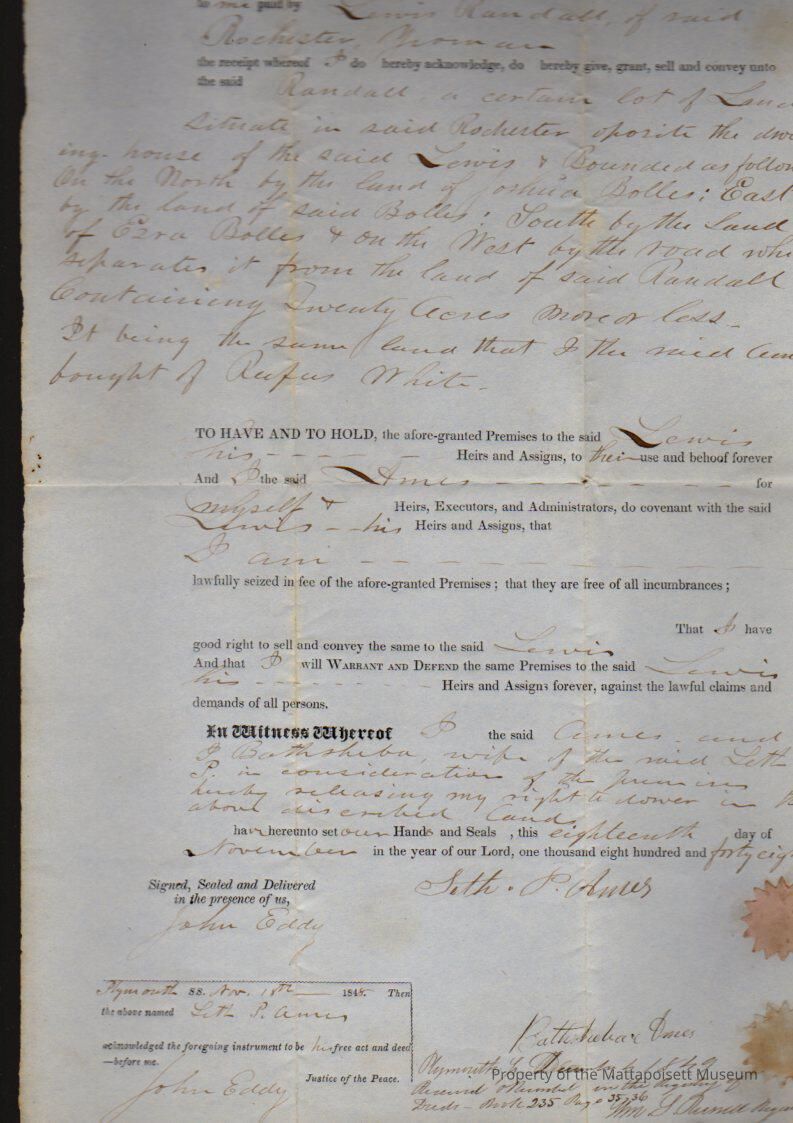 to me paid by Lewis Randall, of said
Rochester, Yeoman
the receipt whereof I do hereby acknowledge, do hereby give, grant, sell and convey unto
the said Randall a certain lot of Land
situate in said Rochester oposite the dwe
ing-house of the said Lewis & Bounded as follow
On the North by the land of Joshua Bolles: East
by the land of said Bolles: South by the Land
of Ezra Bolles & on the West by the road whi
separates it from the land of said Randall
Containing Twenty Acres more or less—
It being the same land that I the said Am
bought of Rufus White—
TO HAVE AND TO HOLD, the afore-granted Premises to the said Lewis
his Heirs and Assigns, to their use and behoof forever
And I the said Ames for
myself & Heirs, Executors, and Administrators, do covenant with the said
Lewis - his Heirs and Assigns, that
I am
lawfully seized in fee of the afore-granted Premises; that they are free of all incumbrances;
That I have
good right to sell and convey the same to the said Lewis
And that I will WARRANT AND DEFEND the same Premises to the said Lewis
his Heirs and Assigns forever, against the lawful claims and
demands of all persons.
In Witness Whereof I the said Ames and
I Bathsheba, wife of the said Seth
P. in consideration of the premises
hereby releasing my right to dower in th
above discribed Land
have hereunto set our Hands and Seals, this eighteenth day of
November in the year of our Lord, one thousand eight hundred and forty eig
Signed, Sealed and Delivered
in the presence of us,
Seth. P. Ames
John Eddy
Plymouth SS. Nov. 18th 1848. Then
the above named Seth P. Ames
acknowledged the foregoing instrument to be his free act and deed
—before me.
John Eddy Justice of the Peace.
Bathsheba Ames
Plymouth
Received & Recorded in the Registry of
Deeds - Book 235 Page 35, 36
Wm S. Russell
Property of the Mattapoisett Museum